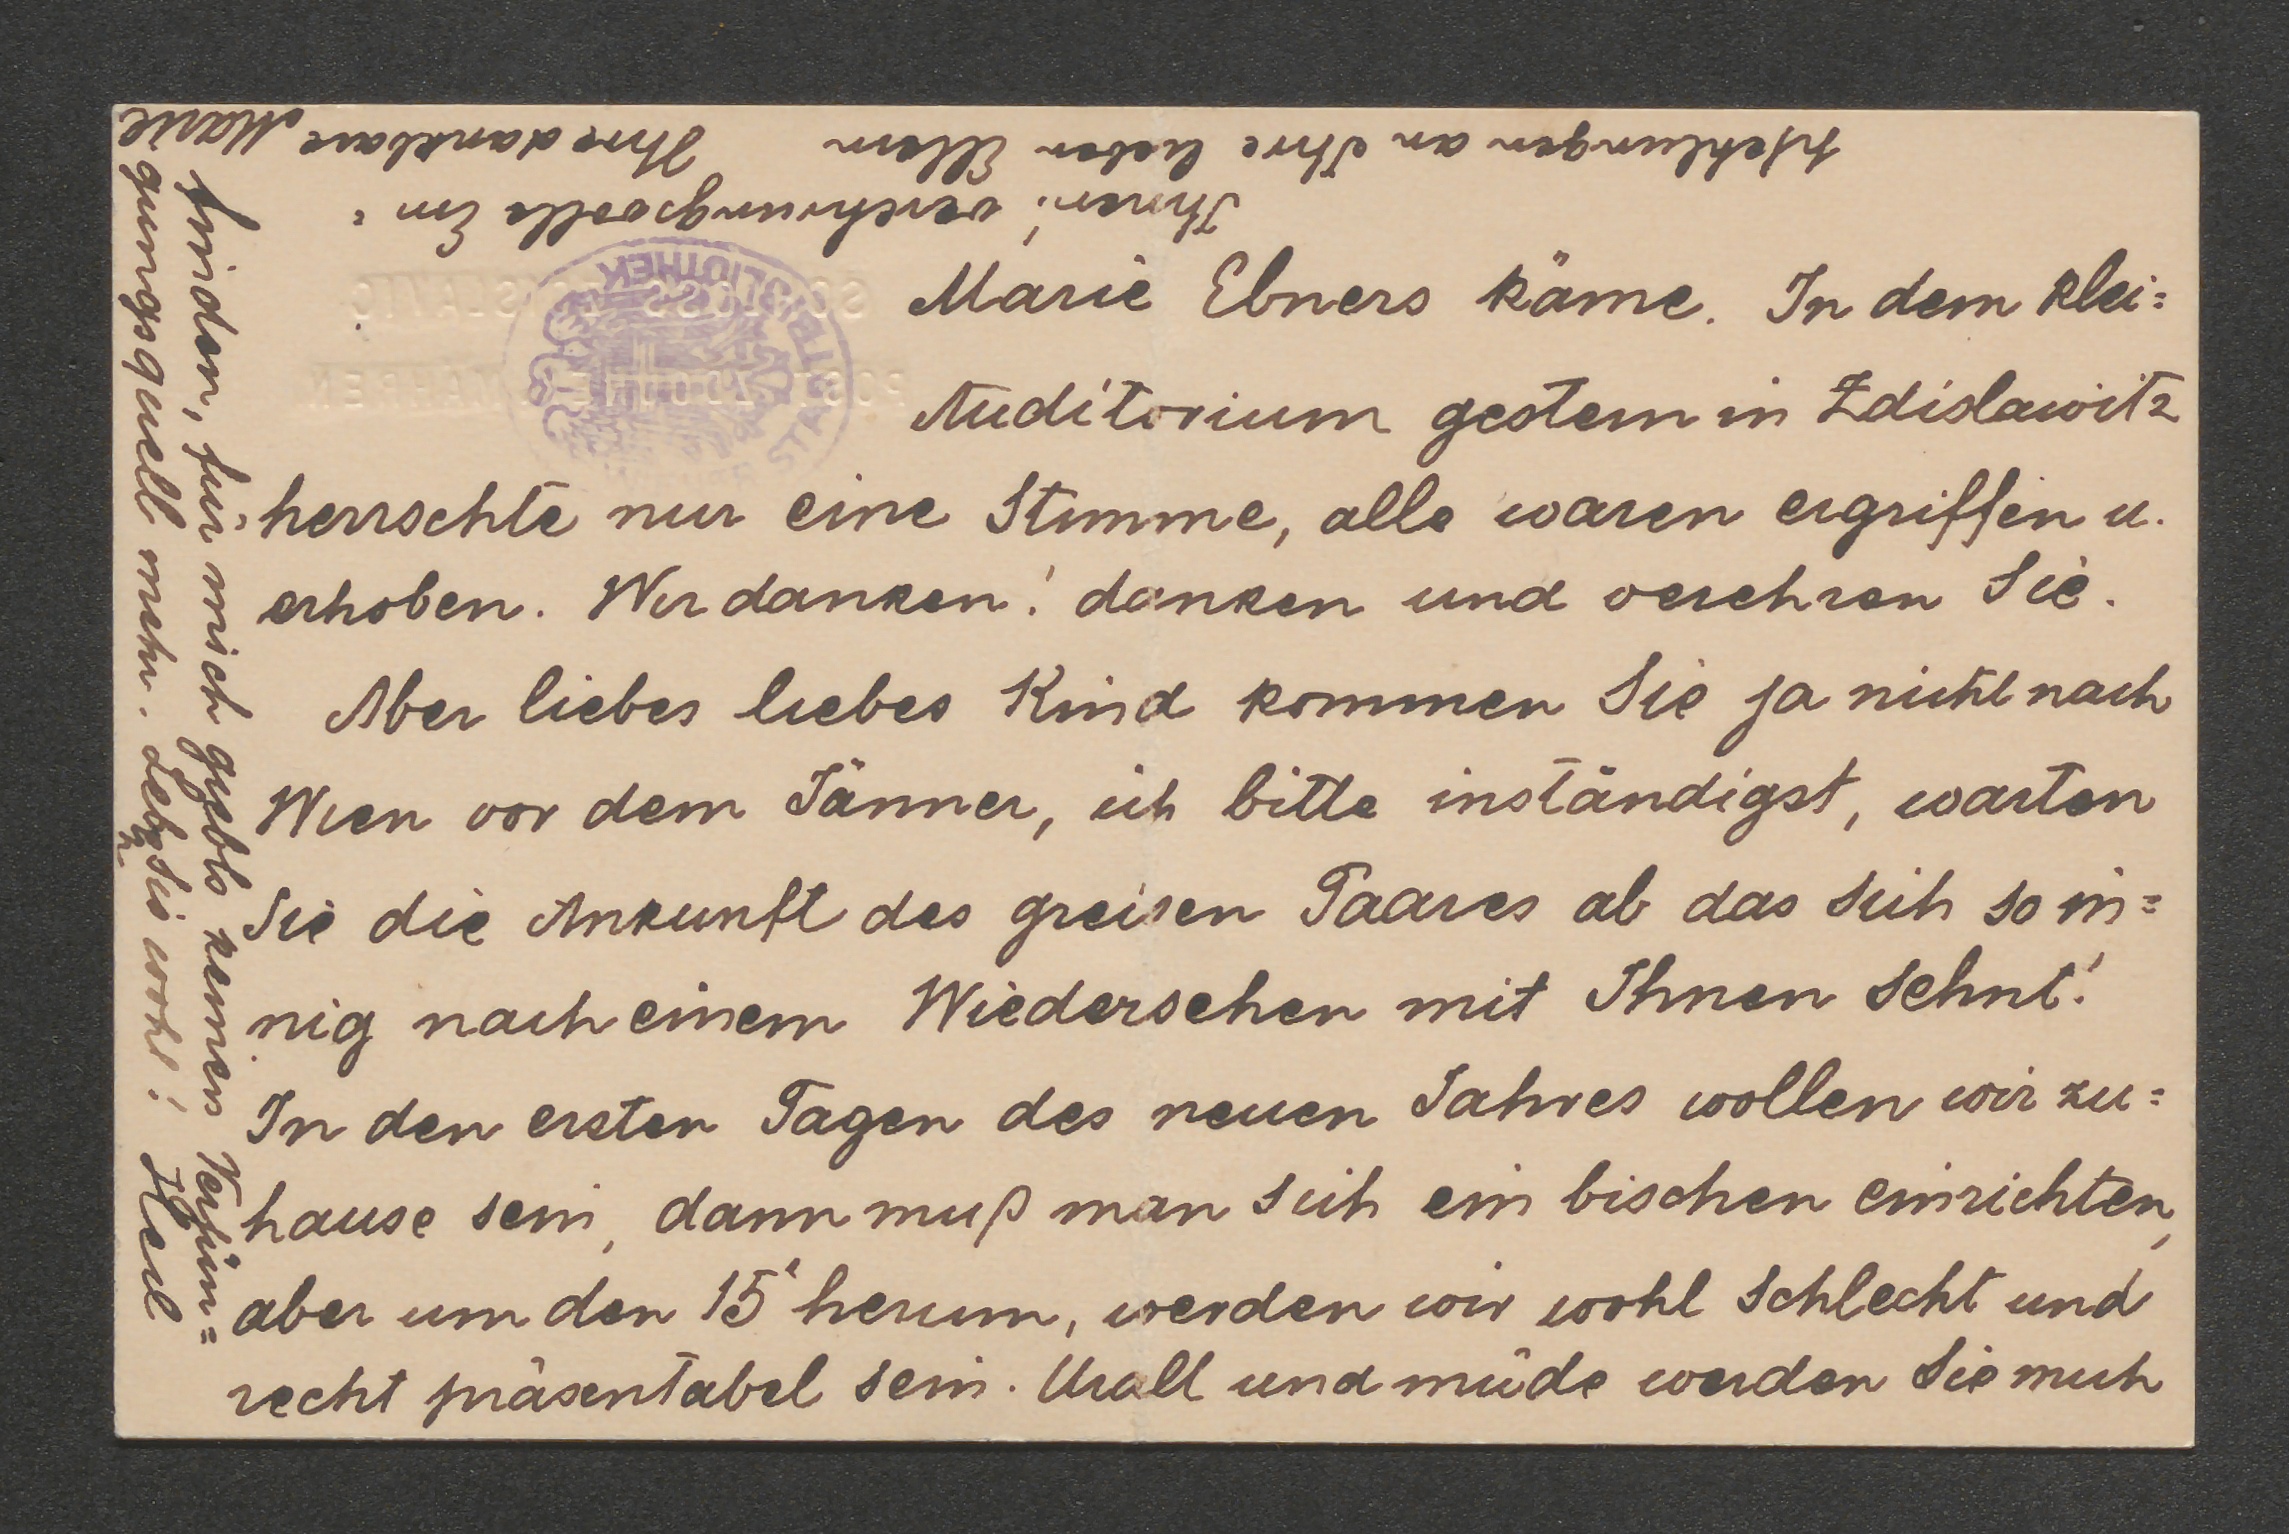 Marie Ebners käme. In dem klei=
Auditorium gestern in Zdislawitz
herrschte nur eine Stimme, alle waren ergriffen u.
erhoben. Wir danken! danken und verehren Sie.
Aber liebes liebes Kind kommen Sie ja nicht nach
Wien vor dem Jänner, ich bitte inständigst, warten
Sie die Ankunft des greisen Paares ab das sich so in=
nig nach einem Wiedersehen mit Ihnen sehnt!
In den ersten Tagen des neuen Jahres wollen wir zu=
hause sein, dann muß man sich ein bischen einrichten,
aber um den 15t herum, werden wir wohl schlecht und
recht präsentabel sein. Uralt und müde werden Sie mich
finden, für mich giebts keinen Verjün=
gungsquell mehr. Leben Sie wohl! Heil
Ihnen! verehrungsvolle Em=
pfehlungen an Ihre lieben Eltern Ihre dankbare Marie
SCHLOSS ZDISLAVIC
POST ZDOUNEK MÄHREN
STADTBIBLIOTHEK